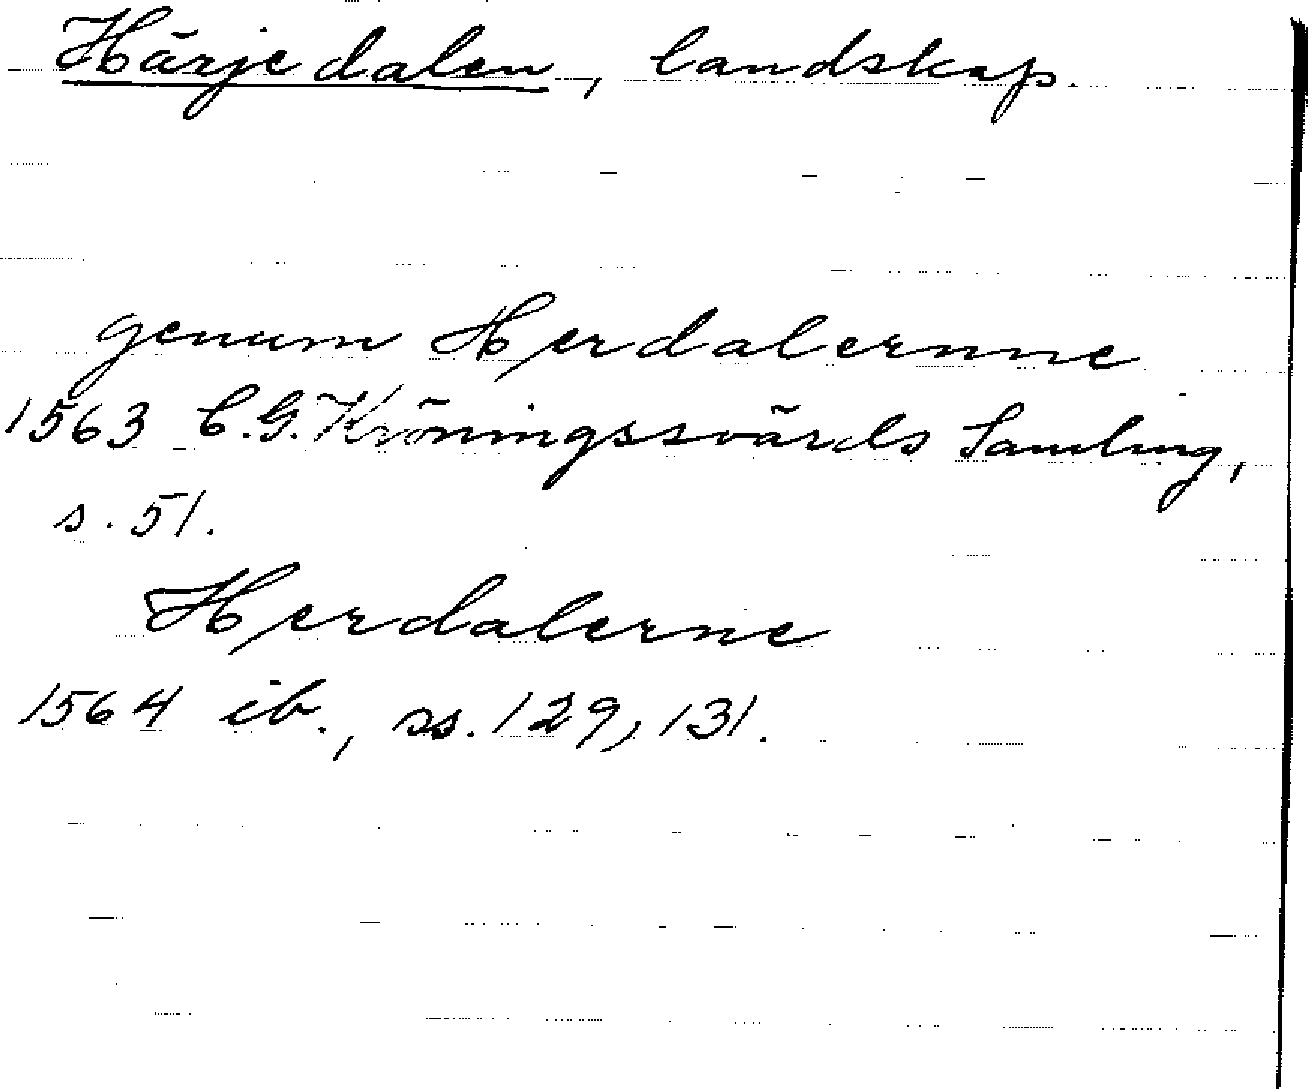 Härjedalen, landskap.
genum Herdalernne
1563 C.G. Kröningssvärds Samling,
s. 51.
Herdalerne
1564 ib., ss. 129, 131.